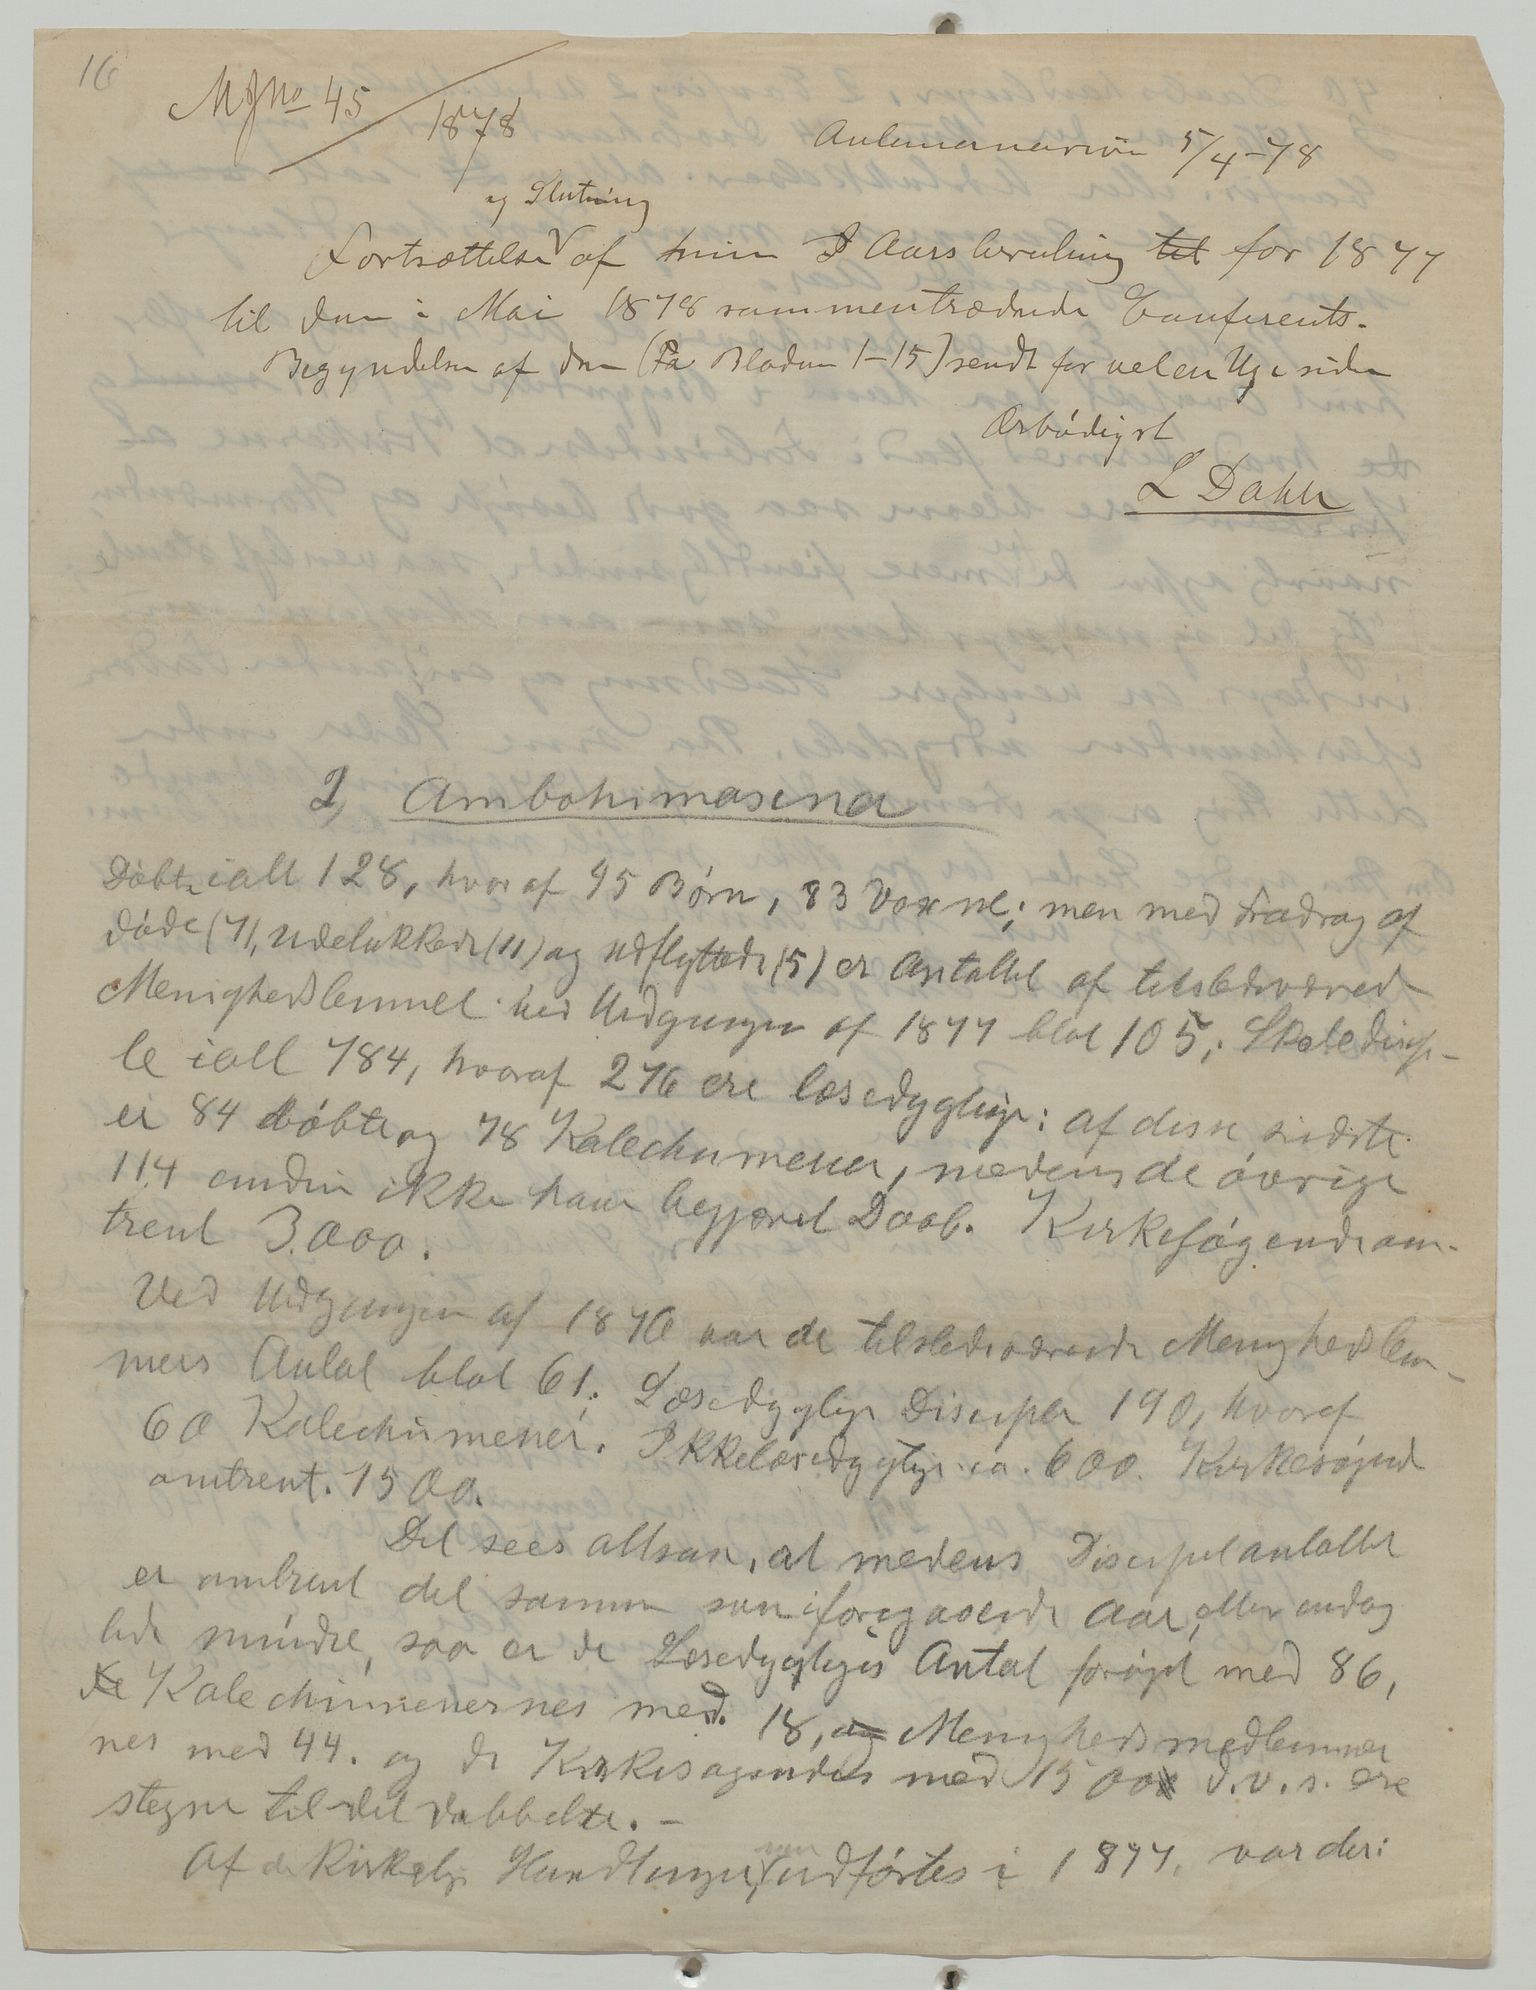 16
MJno 45
1878
Antananarivo 5/4-78
og Slutning
Fortsættelse af min Aarsberetning til for 1877
til den i Mai 1878 sammentrædende Conferents.
Begyndelsen af den (Pa Bladene 1-15) sendt for vel en Uge siden
Ærbødigst
L Dahle
2) Ambohimasina
Døbte ialt 128, hvoraf 45 Børn, 83 Voxne; men med Fradrag af
døde (7), udelukkede (11) og udflyttede (5) er Antallet af tilstedeværende
Menighedslemmer ved Udgangen af 1877 blot 105; Skoledisip-
le ialt 784, hvoraf 276 ere læsedygtige: af disse sidste
er 84 døbte og 78 Katechumener, medens de øvrige
114 endnu ikke have begjæret Daab. Kirkesøgende om-
trent 3.000.
Ved Udgangen af 1876 var de tilstedeværende Menighedslem-
mers Antal blot 61; Læsedygtige Disciple 190, hvoraf
60 Katechumener. Ikkelæsedygtige ca. 600. Kirkesøgende
omtrent 1500.
Det sees altsaa, at medens Discipelantallet
er omtrent det samme som i foregaaende Aar, eller endog
lidt mindre, saa er de Læsedygtiges Antal forøget med 86,
de Katechumenernes med 18, og Menighedsmedlemmer
nes med 44. og de Kirkesøgendes med 1500 d.v.s. ere
stegne til det dobbelte. -
Af de kirkelige Handlinger, som udførtes i 1877, var der: